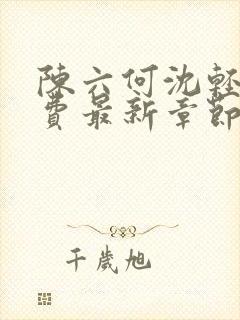 陳六何沈輕
費最新章節
千歲旭